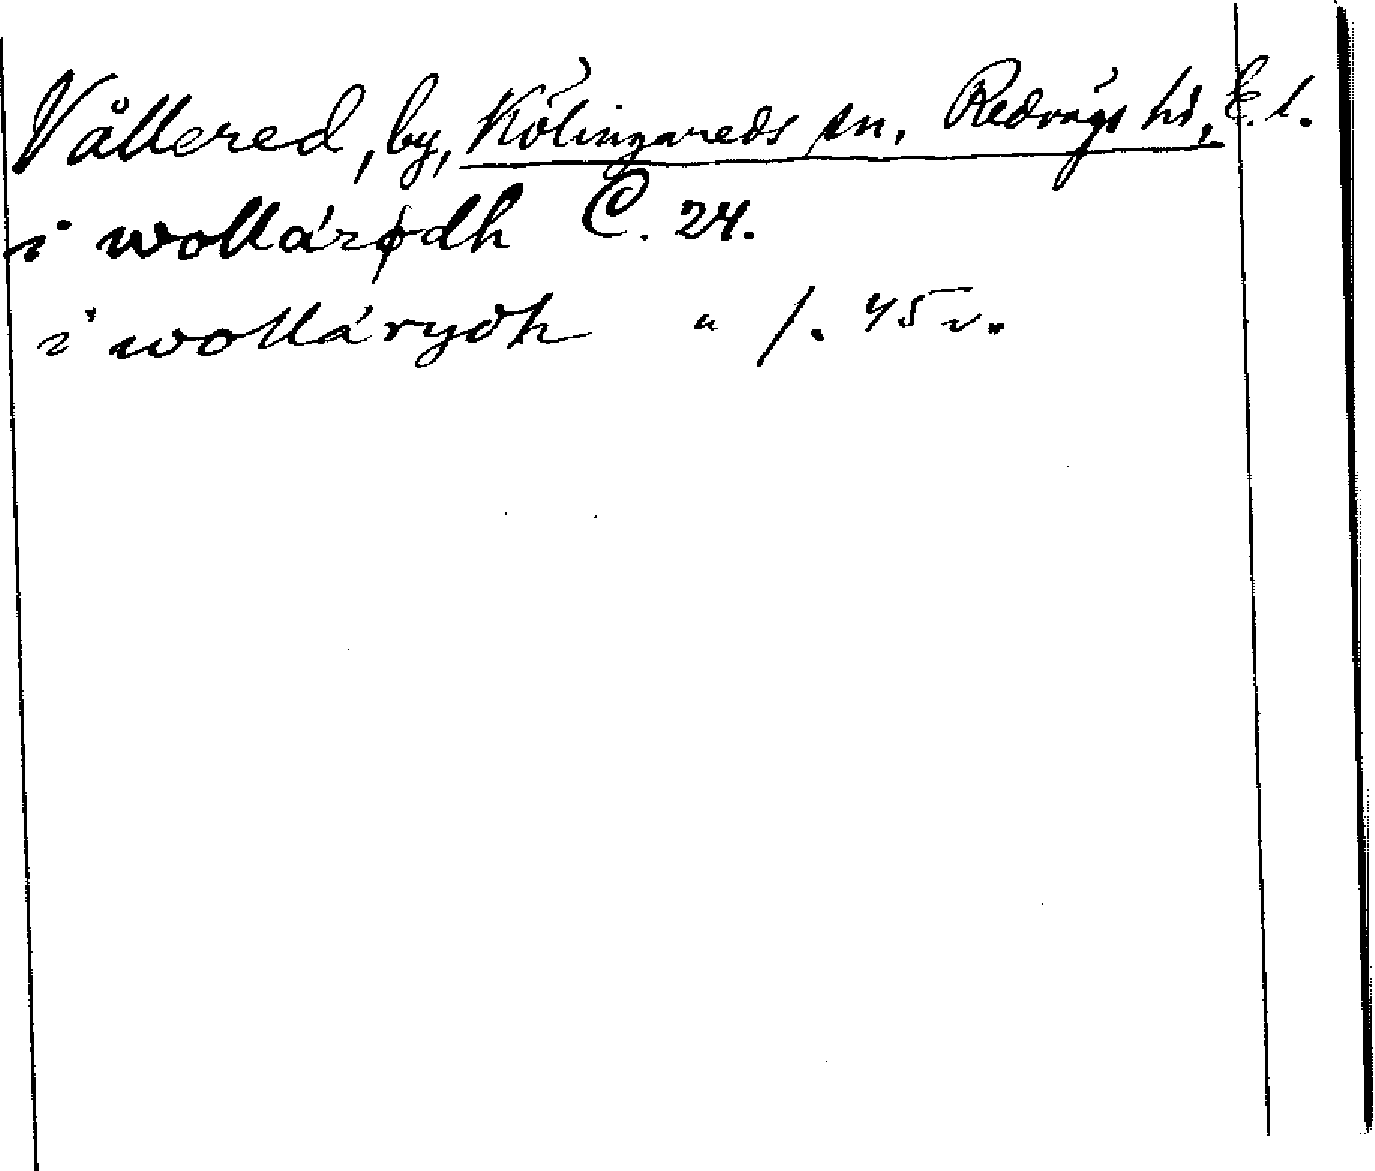 Vållered, by, Kölingareds sn. Redvägs hd, E. l.
i wollárødh C. 24.
i wollárydh " f. 45 v.